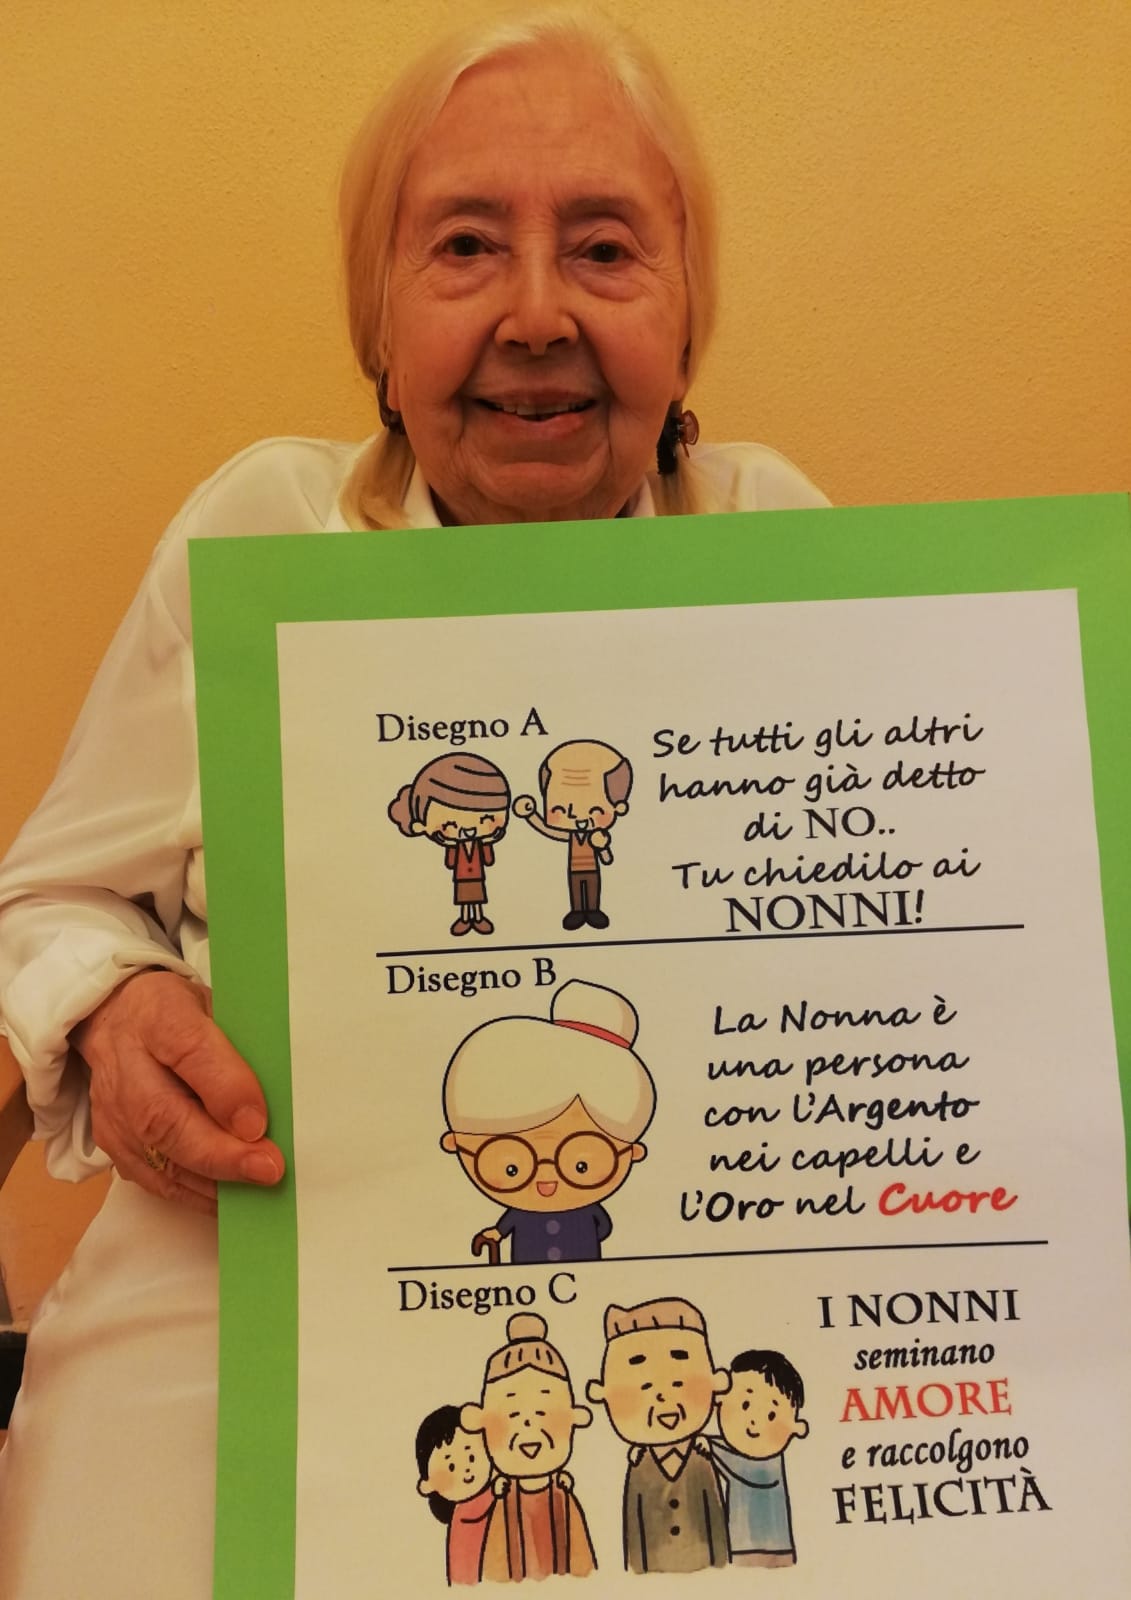 Disegno A
Se tutti gli altri
hanno già detto
di NO..
Tu chiedilo ai
NONNI!
Disegno B
La Nonna è
una persona
con l'Argento
nei capelli e
l'Oro nel Cuore
Disegno C
I NONNI
seminano
AMORE
e raccolgono
FELICITÀ